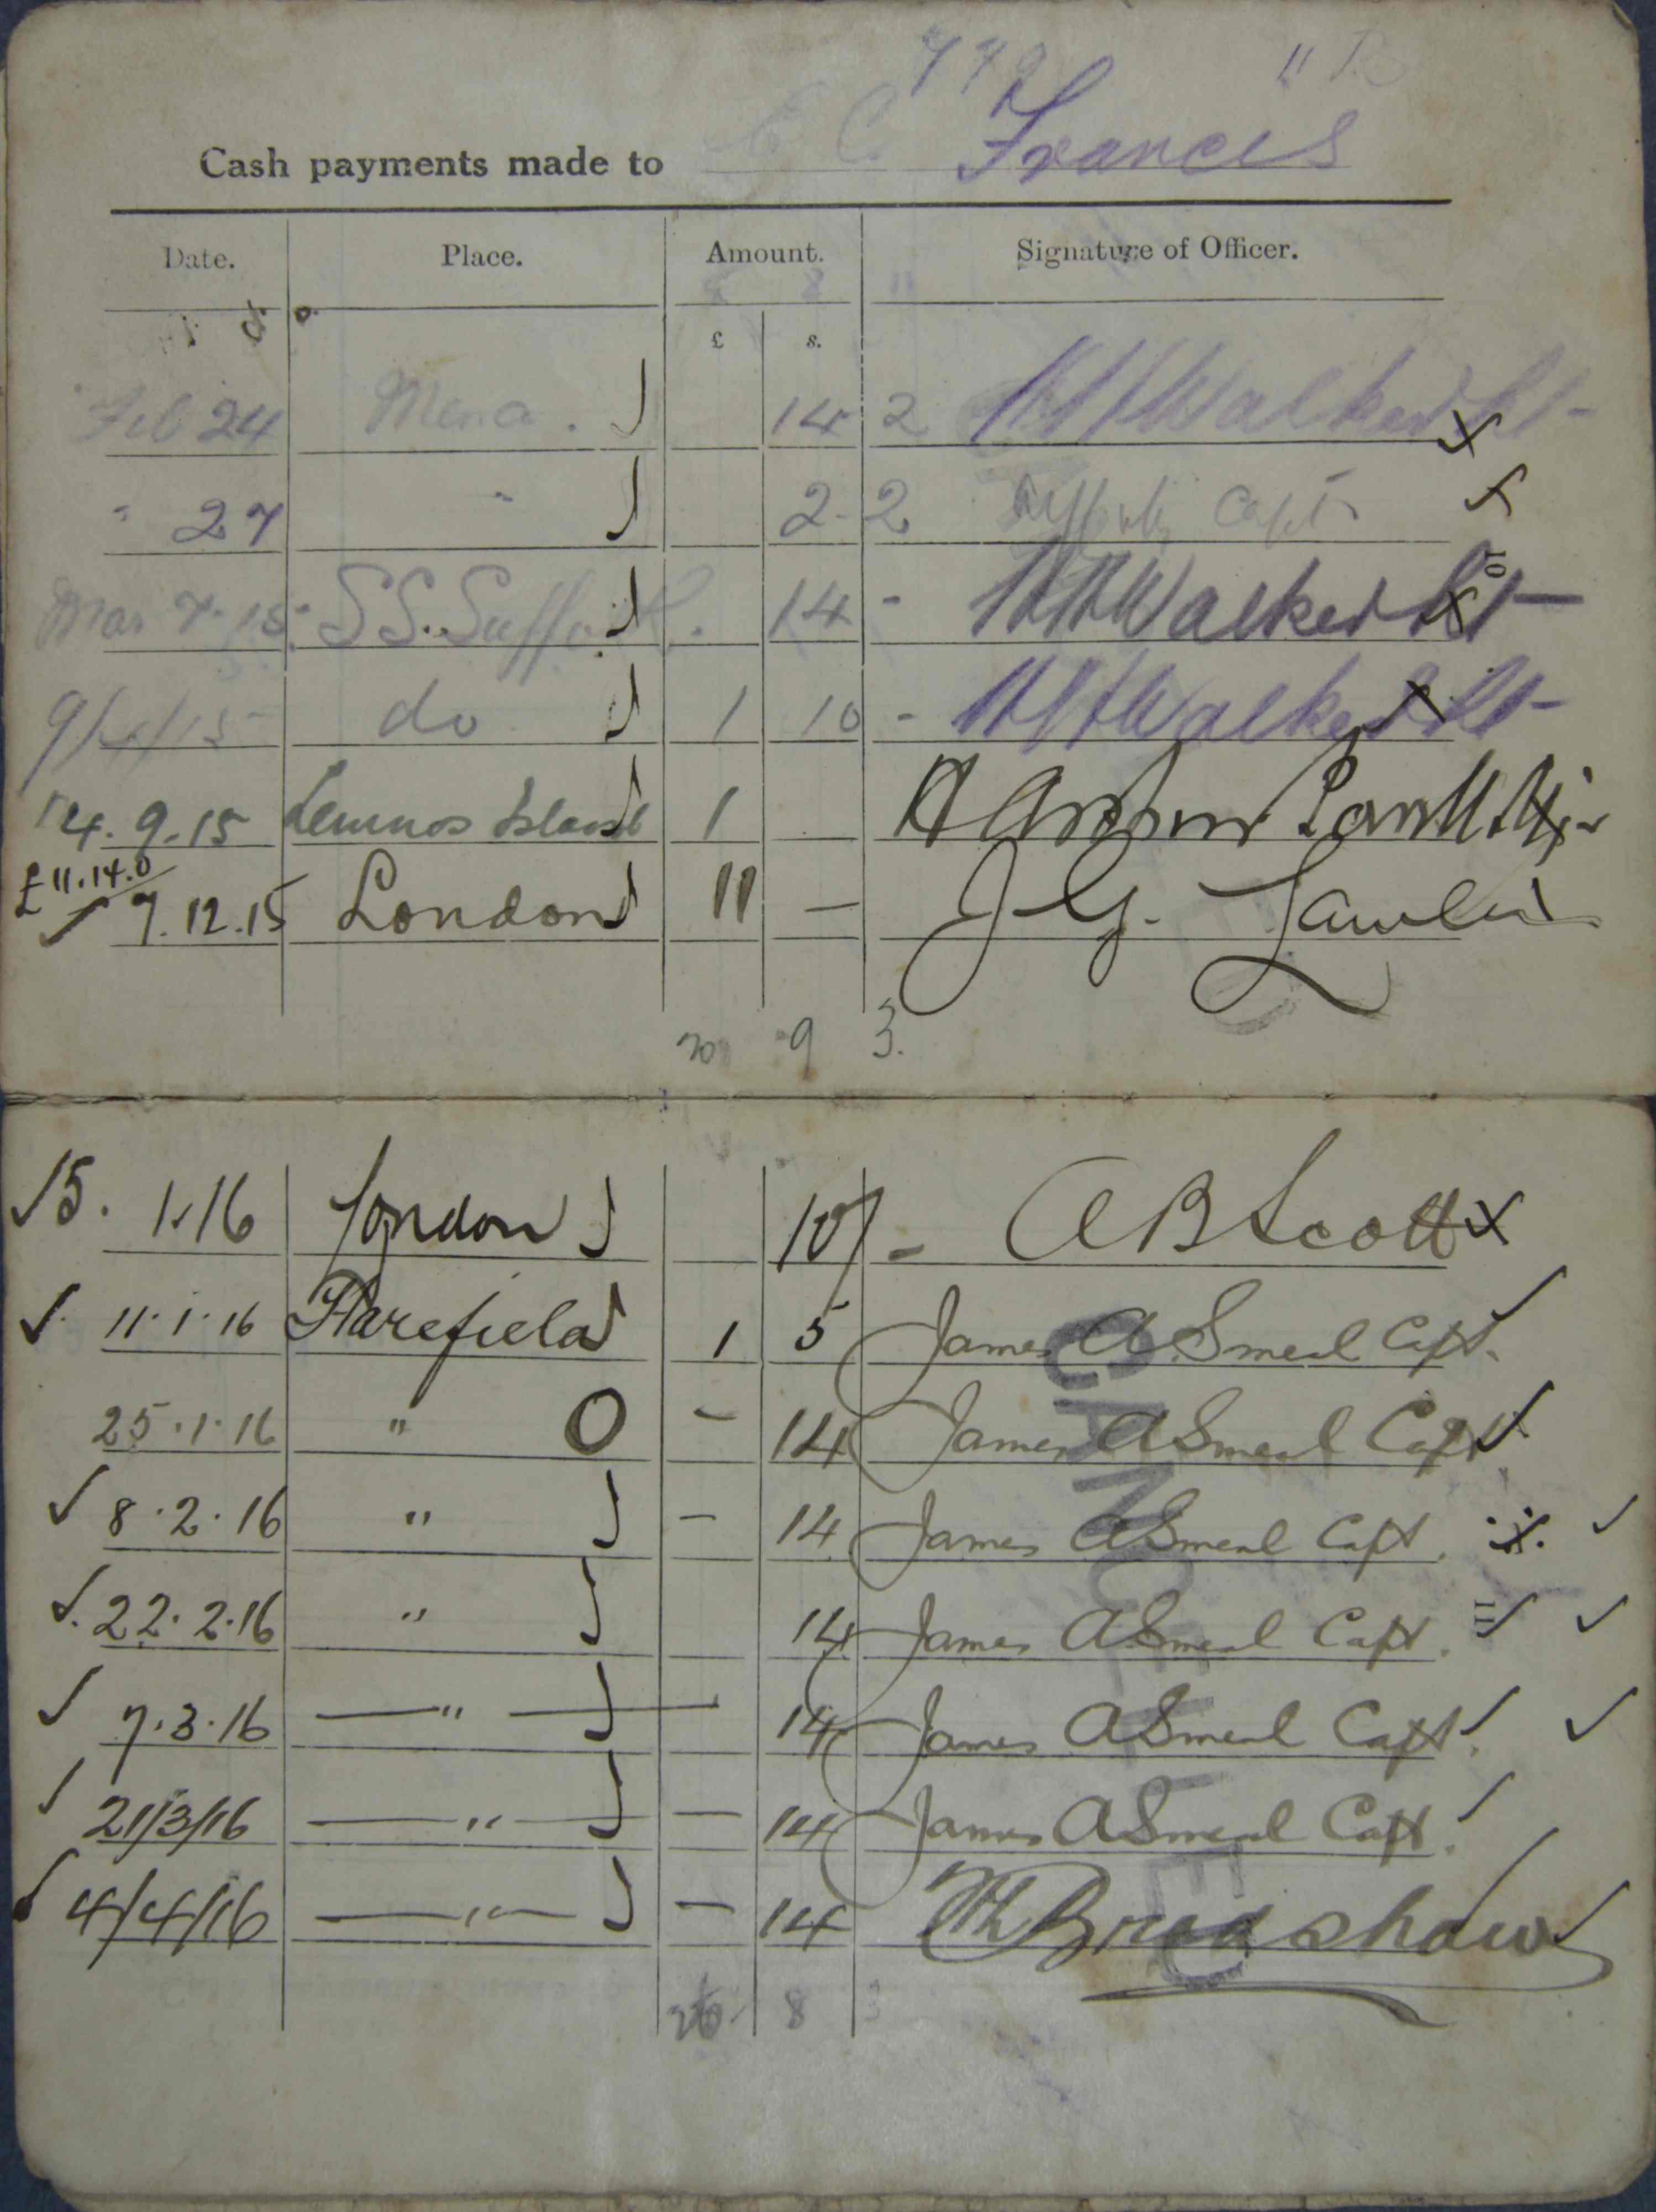 779 "B
Cash payments made to E C. Francis
Date. Place. Amount. Signature of Officer.
£ s.
Feb 24 Mena. 14 2 Walker Lt
" 27 " 2 2 Capt
Mar 7. 15 S.S. Suffolk. 14 - Walker Lt
9/4/15 do 1 10 - Walker Lt
14.9.15 Lemnos Island 1 —
£11.14.0
7.12.15 London 11 — J. G.
20 9 3.
15. 1.16 London 10/- A B Scott
11.1.16 Harefield 1 5 James A Smeal Capt.
25.1.16 " 0 - 14 James A Smeal Capt
8.2.16 " - 14 James A Smeal Capt.
22.2.16 " 14 James A Smeal Capt. 11
7.3.16 — " — 14 James A Smeal Capt.
21/3/16 — " — - 14 James A Smeal Capt.
4/4/16 — " — - 14 Bradshaw
26 8 3
CANCELLED